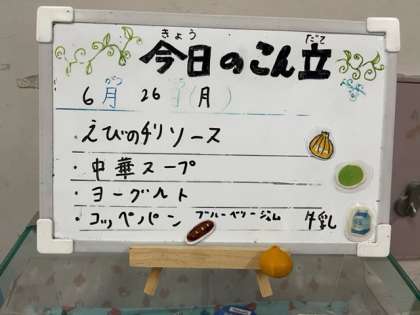 きょう だて
今日のこん立
がつ にち
6月 26日(月)
・えびのチリソース
・中華スープ
・ヨーグルト
・コッペパン ブルーベリージャム 牛乳